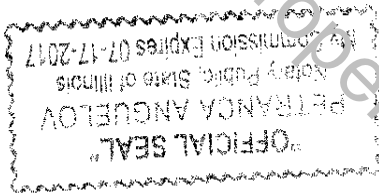 "OFFICIAL SEAL"
PETRANCA ANGUELOV
Notary Public, State of Illinois
My Commission Expires 07-17-2017